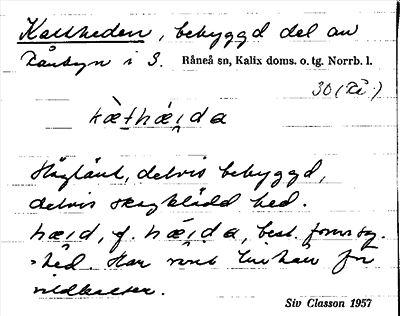 Kattheden, bebyggd del av
i S. Råneå sn, Kalix doms. o. tg. Norrb. l.
30
Högländ, delvis bebyggd,
delvis skogklädd hed.
hæid, f. hæida, best. form sg.
hed. Har varit för
Siv Classon 1957